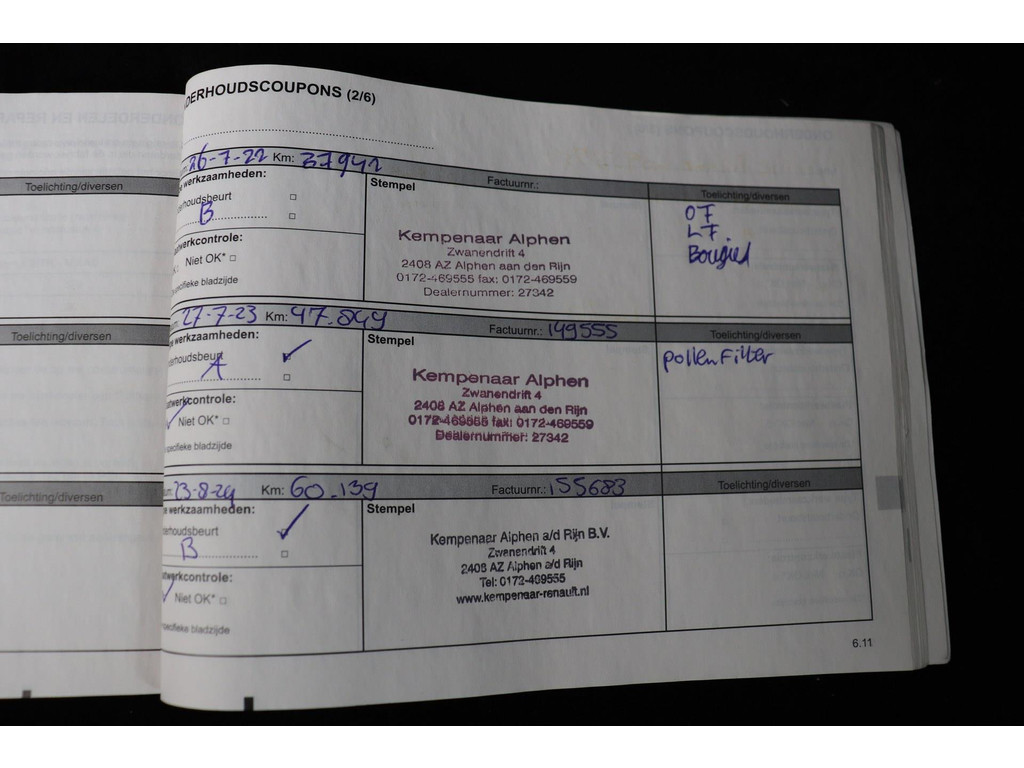 DERHOUDSCOUPONS (2/6)
Toelichting/diversen
26-7-22 Km: 37942
werkzaamheden:
Stempel
Factuurnr.:
Toelichting/diversen
erhoudsbeurt
B
OF
LF.
werkcontrole:
Niet OK*
ecifieke bladzijde
Kempenaar Alphen
Zwanendrift 4
2408 AZ Alphen aan den Rijn
0172-469555 fax: 0172-469559
Dealernummer: 27342
Toelichting/diversen
27-7-23 Km: 47.849
Factuurnr.: 149555
Toelichting/diversen
werkzaamheden:
Stempel
pollenFilter
rhoudsbeurt
A
twerkcontrole:
Niet OK*
pecifieke bladzijde
Kempenaar Alphen
Zwanendrift 4
2408 AZ Alphen aan den Rijn
0172-469555 fax: 0172-469559
Dealernummer: 27342
Toelichting/diversen
23-8-24 Km: 60.139
Factuurnr.: 155683
Toelichting/diversen
e werkzaamheden:
Stempel
erhoudsbeurt
B
twerkcontrole:
Niet OK*
pecifieke bladzijde
Kempenaar Alphen a/d Rijn B.V.
Zwanendrift 4
2408 AZ Alphen a/d Rijn
Tel: 0172-469555
www.kempenaar-renault.nl
6.11